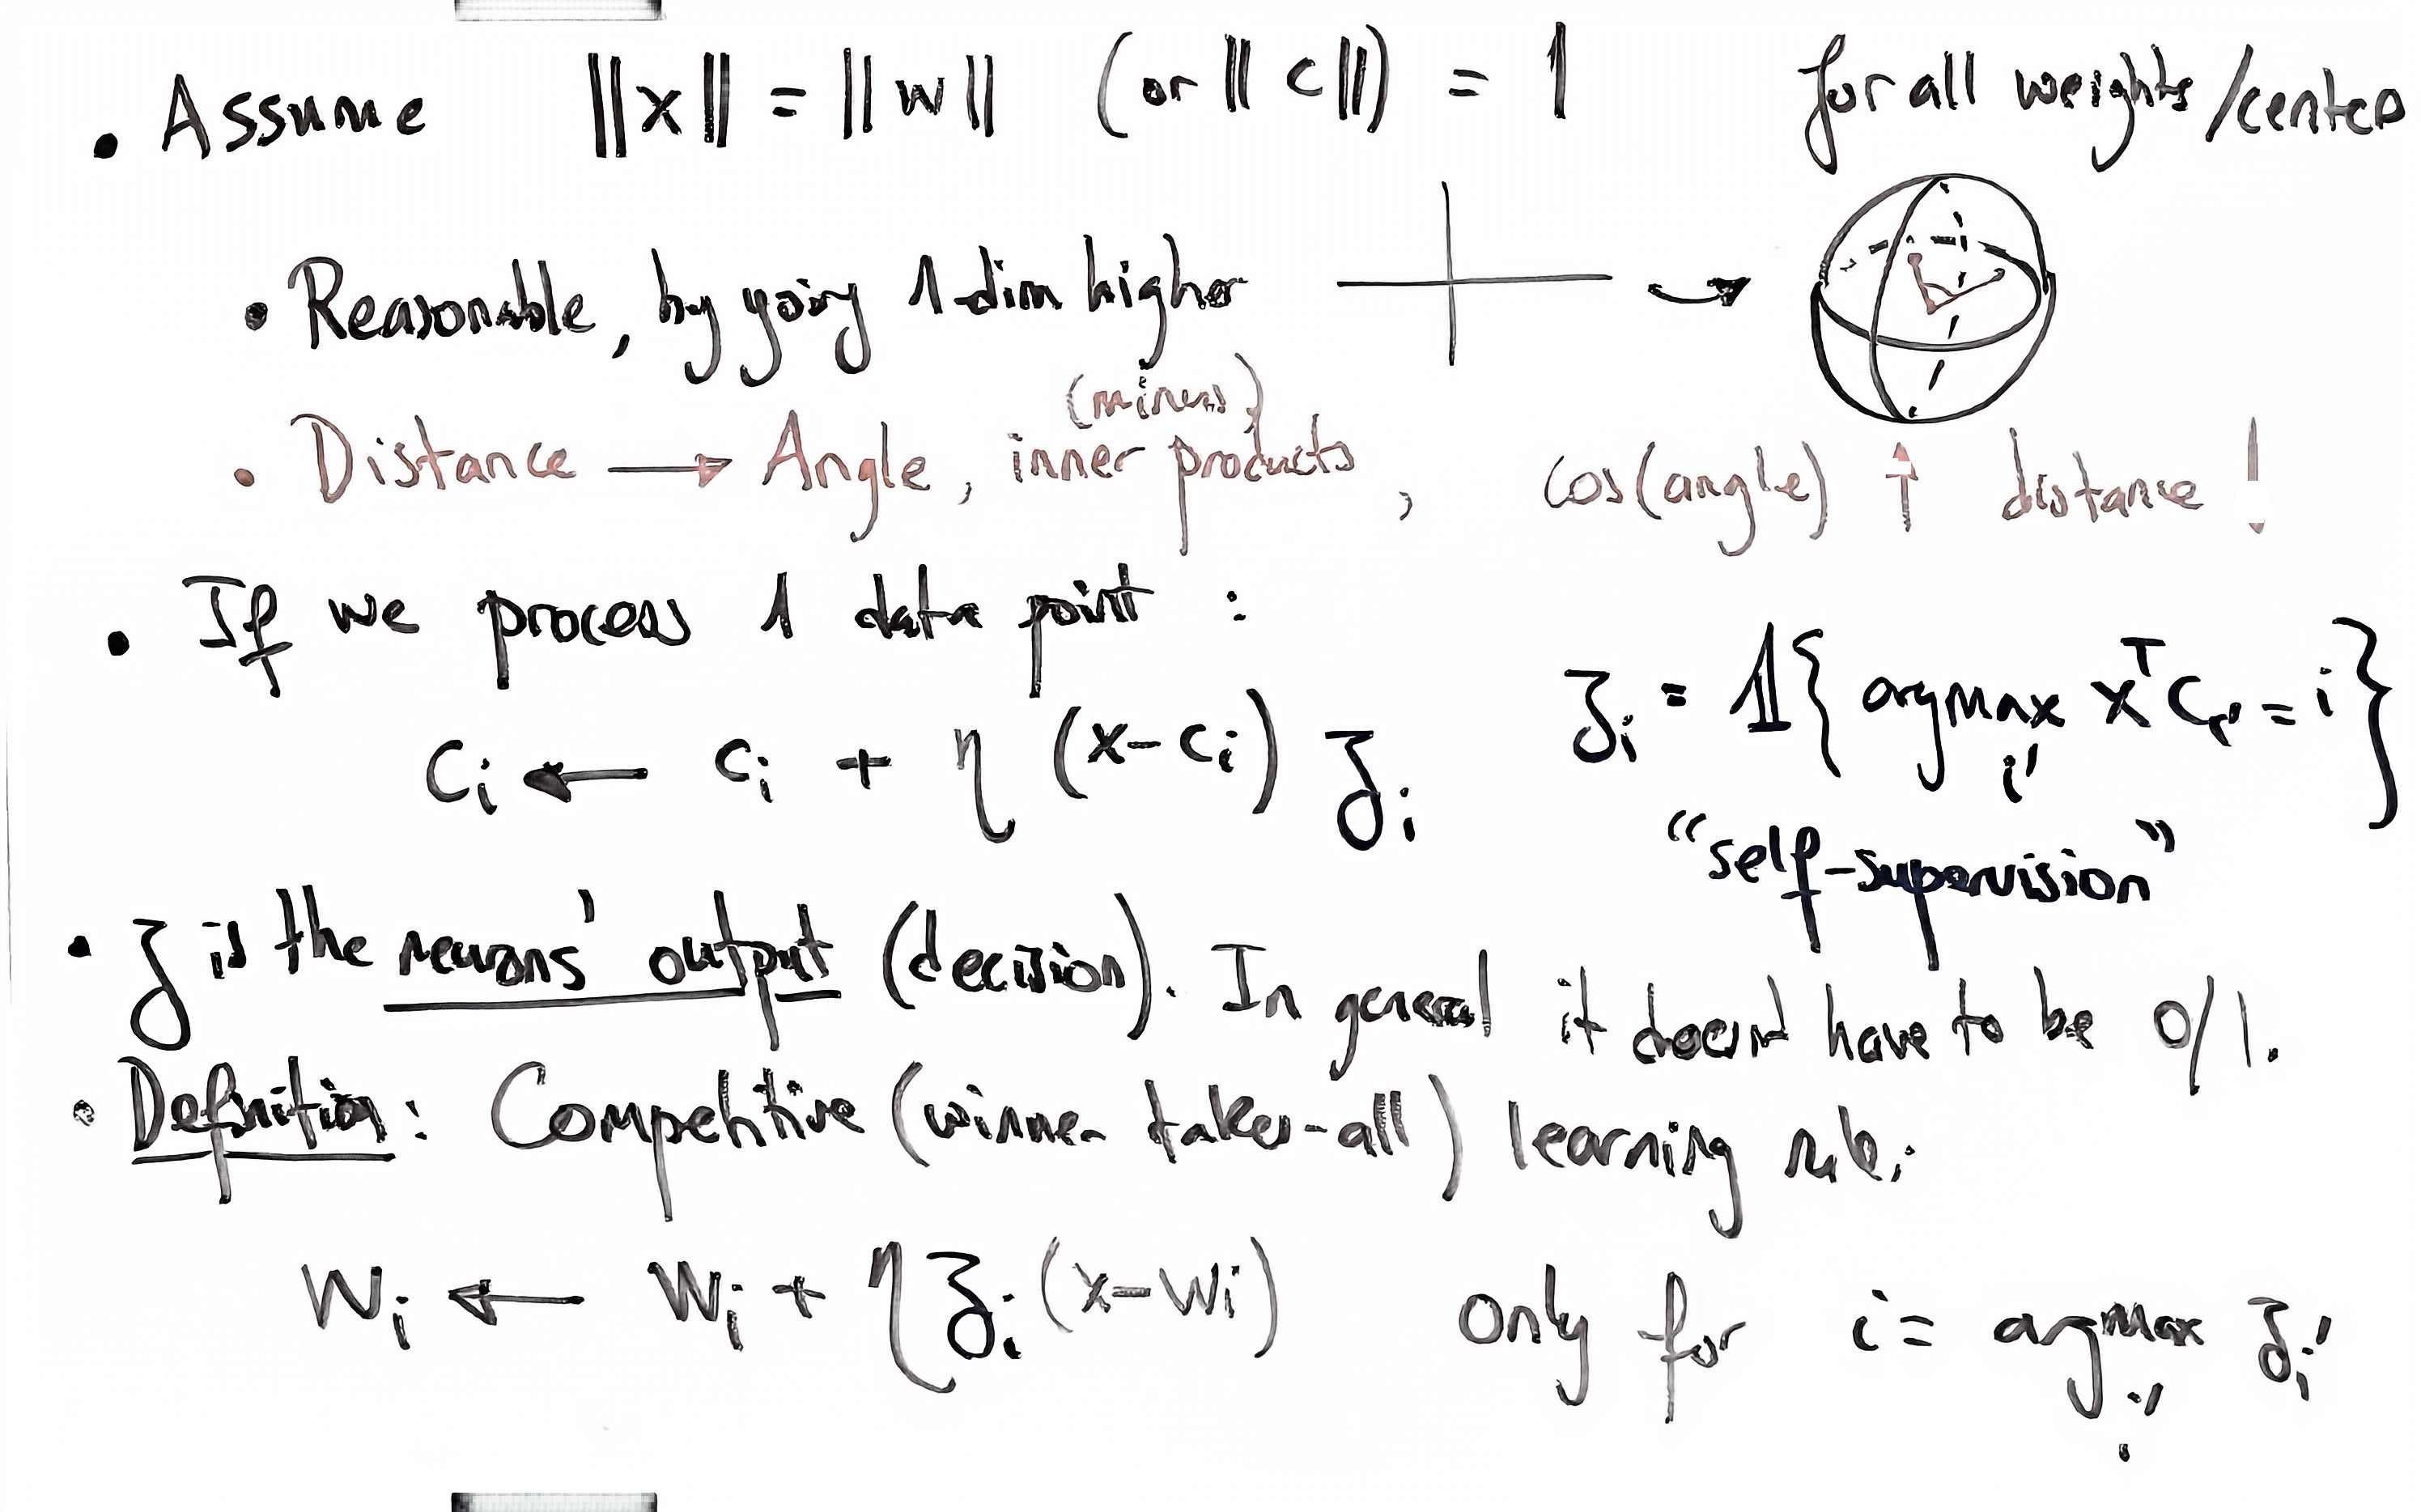 • Assume ||x|| = ||w|| (or || c ||) = 1 for all weights/centers
• Reasonable, by going 1-dim higher
(minus)
• Distance → Angle, inner products, cos(angle) ↑ distance!
• If we process 1 data point :
c_i ← c_i + η (x-c_i) z_i
z_i = 𝟙{ argmax_{i'} x^T c_{i'} = i }
"self-supervision"
• z is the neurons' output (decision). In general it doesn't have to be 0/1.
• Definition: Competitive (winner takes-all) learning rule:
w_i ← w_i + η z_i (x-w_i) only for i = argmax_{i'} z_{i'}